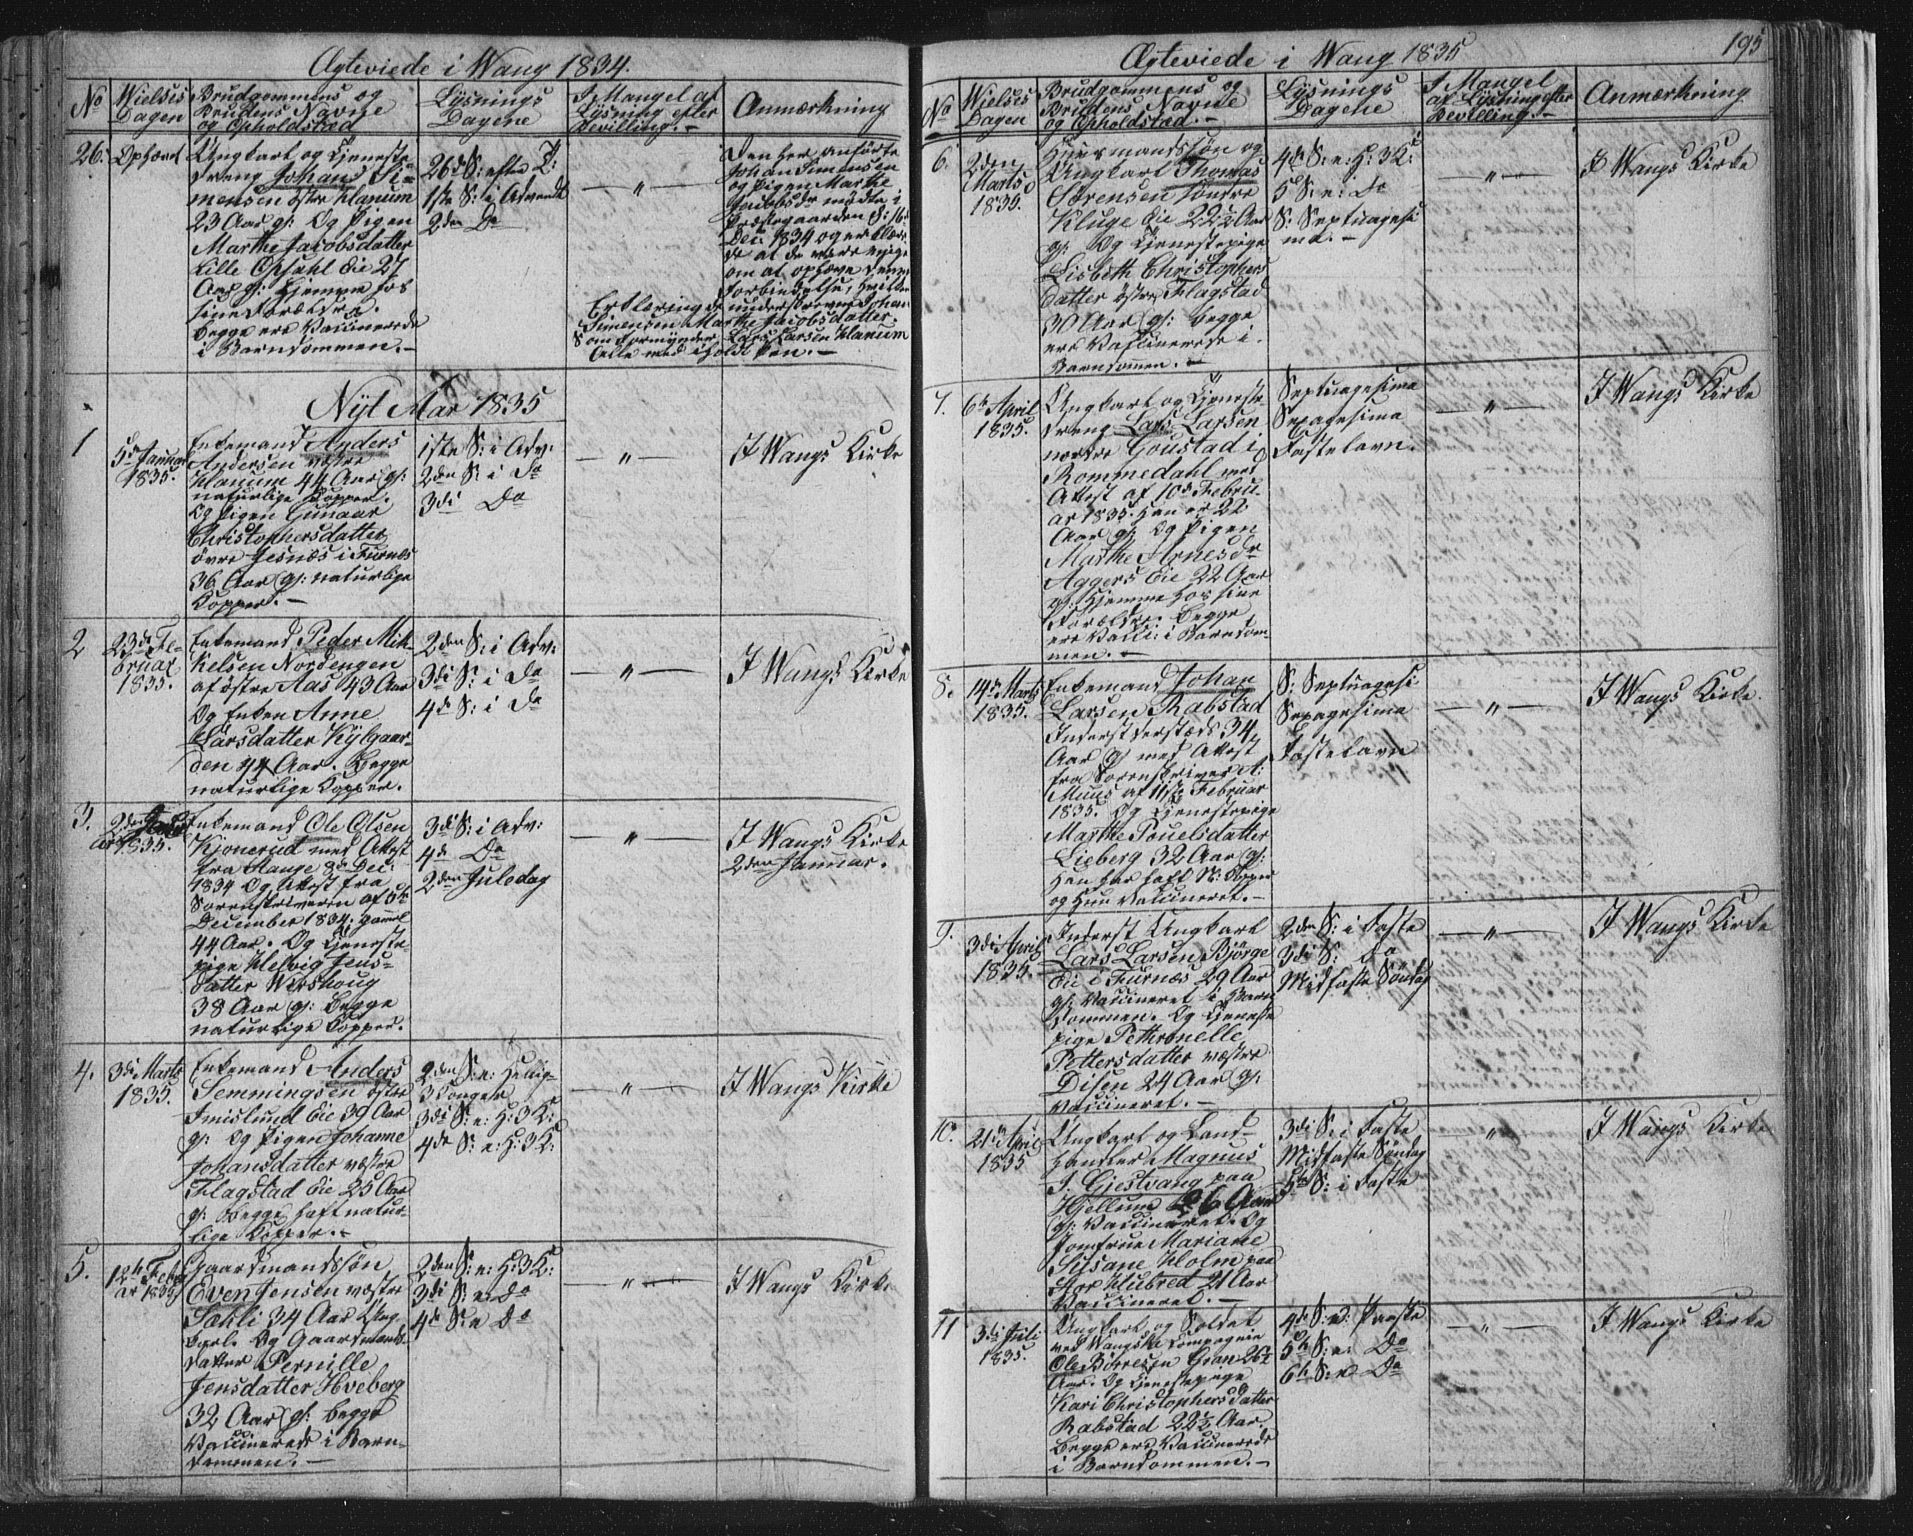 Ægteviede i Wang 1834.
No
Wielses Dagen
Brudgommens og Brudens Navne og Opholdsted
Lysnings Dagene
I Mangel af Lysning efter Bevilling.-
Anmærkning
26.
Ophævet
Ungkarl og Tjeneste-
dreng Johans Si-
mensen østre Hanum
23 Aar gl: Og Pigen
Marthe Jacobsdatter
Lille Opsahl Eie 27
Aar gl: hjemme hos
sine Forældre.
begge ere Vaccinerede
i Barndommen.-
26de S: efter T:
1ste S: i Advendt
2den Do
— " —
Den her anførte
Johan Simensen
og Pigen Marthe
Jacobsdr mødte i
Præstegaarden d: 16
Dec: 1834 og erklære-
de at de vare enige
om at ophæve denne
Forbindelse, hvilken
Erklæring de underskreven Johan
Simensen Marthe Jacobsdatter.
Som Formynder Lars Larsen Hanum
Nyt Aar 1835
1
5te Januar
1835.
Enkemand Anders
Andersen væstre
Hanum 44 Aar gl:
naturlige Kopper.
Og Pigen Gunaar
Christophersdatter
øvre Jesnæs i Furnæs
36 Aar gl: naturlige
Kopper.-
1ste S: i Adv:
2den S: i Do
3di Do
— " —
I Wangs Kirke
2
23de Fe-
bruar
1835.
Enkemand Peder Mik-
kelsen Nordengen
af østre Aas 43 Aar
Og Enken Anne
Larsdatter Kylgaar-
den 44 Aar. Begge
naturlige Kopper.
2den S: i Adv:
3di S: i Do
4de S: i Do
— " —
I Wangs Kirke
3.
2den Janu-
ar 1835.
Enkemand Ole Olsen
Kjonerud med Attest
fra Stange 8de Dec:
1834 Og Attest fra
Sorenskriveren af 5te
December 1834. gaml
44 Aar. Og Tjeneste-
pige Helvig Jens-
datter Wershoug
38 Aar gl: Begge
naturlige Kopper.
3di S: i Adv:
4de Do
2den Juledag
— " —
I Wangs Kirke
2den Januar.
4.
3di Marts
1835.
Enkemand Anders
Semmingsen østre
Imislund Eie 39 Aar
gl: Og Pigen Johanne
Johansdatter væstre
Flagstad Eie 25 Aar
gl: Begge haft natur-
lige Kopper.-
2den S: e: Hellig-
3 Konger
3di S: e: H: 3 K:
4de S: e: H: 3 K:
— " —
I Wangs Kirke
5.
12te Febru-
ar 1835
Gaardmandssøn
Even Jensen væstre
Sahli 34 Aar Ung-
karl. Og Gaardmands-
datter Pernille
Jensdatter Hveberg
32 Aar gl: begge
Vaccinerede i Barn-
dommen.-
2den S: e: H: 3 K:
3di S: e Do
4de S: e Do
— " —
I Wangs Kirke
Ægteviede i Wang 1835
195
No
Wielses Dagen
Brudgommens og Brudens Navne og Opholdstad.-
Lysnings Dagene
I Mangel af Lysning efter Bevilling.-
Anmærkning
6.
2den
Marts
1835.
Huusmandssøn og
Ungkarl Thomas
Sørensen søndre
Kluge Eie 22½ Aar
gl: Og Tjenestepige
Lisbeth Christophers
datter østre Flagstad
30 Aar gl: begge
ere Vaccinerede i
Barndommen.-
4de S: e: H: 3 K:
5te S: e: Do
S: Septuagesi
ma.-
— " —
I Wangs Kirke
7.
6te April
1835.
Ungkarl og Tjeneste-
dreng Lars Larsen
nordre Goustad i
Rommedahl med
Attest af 10de Febru-
ar 1835. Han er 22
Aar gl: Og Pigen
Marthe Arnesdr
Aggers Eie 22 Aar
gl: Hjemme hos sine
Forældre. Begge
ere Vacci: i Barndom
men.-
Septuagesima
Sexagesima
Fastelavn.
— " —
I Wangs Kirke
8.
14de Marts
1835.
Enkemand Johan
Larsen Rabstad
Inderst dersteds 34
Aar gl med Attest
fra Sorenskriver A:
Muus af 11te Februar
1835. Og Tjenestepige
Marthe Pouelsdatter
Lieberg 32 Aar gl:
Han har haft N: Kopper
og Hun Vaccineret.-
S: Septuagesi
Sexagesima
Fastelavn
— " —
I Wangs Kirke.
9.
3di April
1835.
Inderst Ungkarl
Lars Larsen Bjørge
Eie i Furnæs 29 Aar
gl: Vaccineret i Barn
dommen. Og Tjeneste
pige Pethronelle
Pettersdatter væstre
Disen 24 Aar gl:
Vaccineret.-
2den S: i Faste
3di S: Do
Midfaste Søndag
— " —
I Wangs Kirke
10.
21de April
1835
Ungkarl og Land-
handler Magnus
J. Gjestvang paa
Hjellum 26 Aar
gl: Vaccineret. Og
Jomfrue Mariane
Susane Holm paa
Hubred 21 Aar
Vaccineret.-
3di S: i Faste
Midfaste Søndag
5te S: i Faste
— " —
I Wangs Kirke
11
3di Juli
1835.
Ungkarl og Soldat
ved Wangske Compagnie
Ole Børresen Gran 26½
Aar. Og Tjenestepige
Kari Christophersdatter
Rabstad 22½ Aar.
Begge ere Vaccinerede
i Barndommen.-
4de S: e: Paaske
5te S: e: Do
6te S: e Do
— " —
I Wangs Kirke